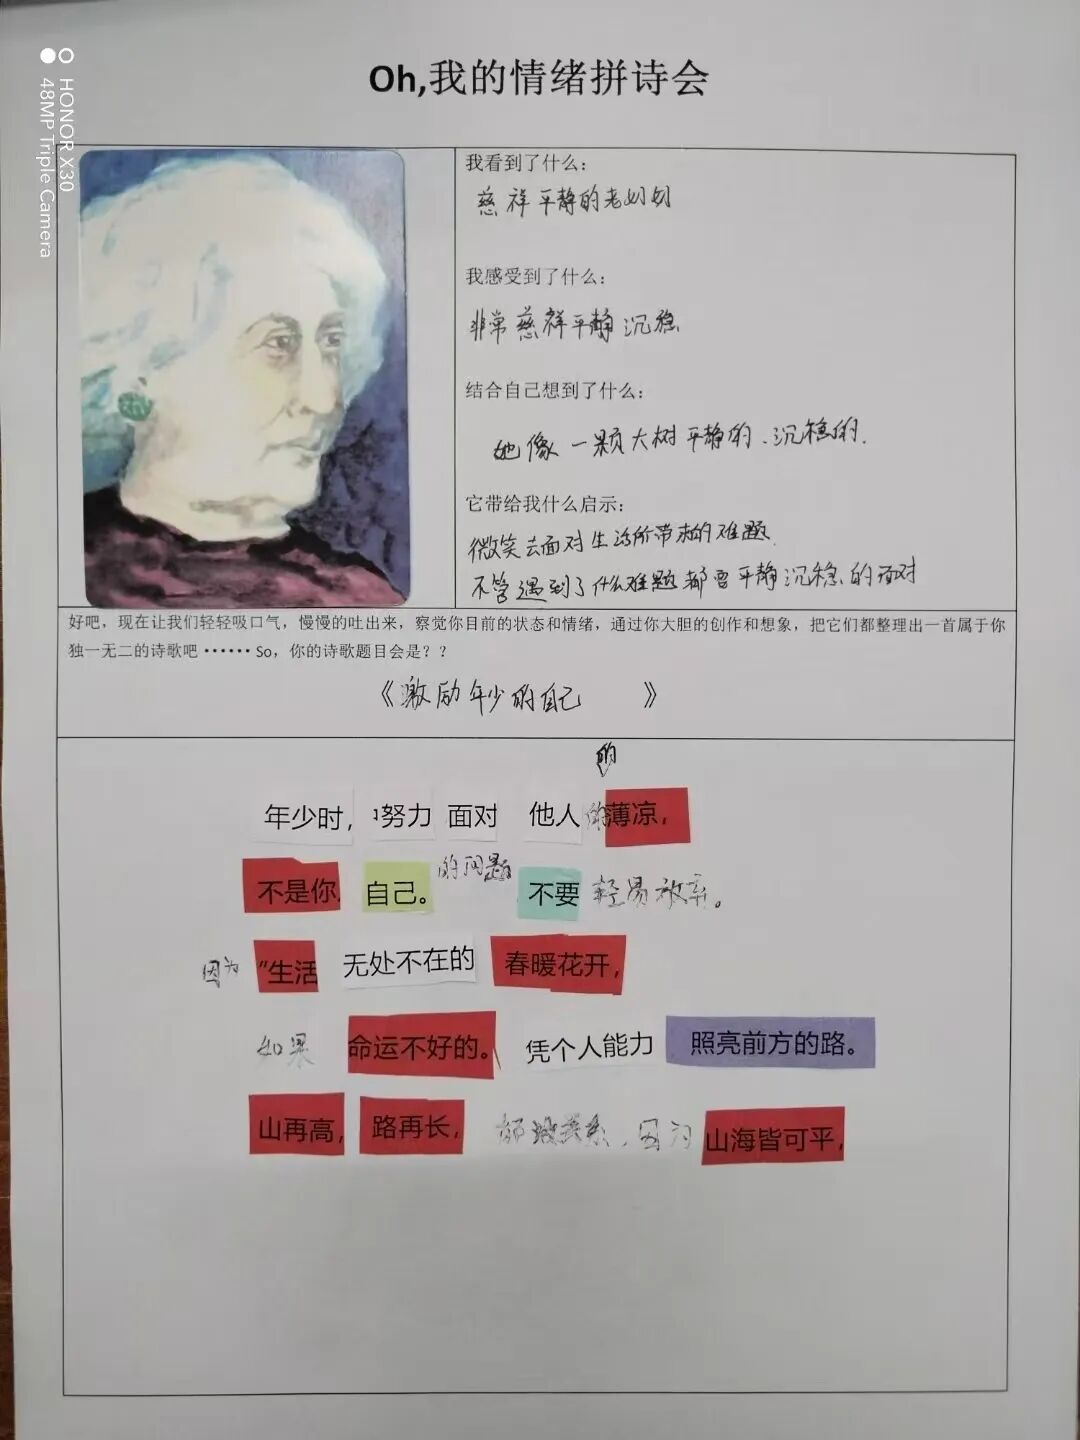 HONOR X30
48MP Triple Camera
Oh,我的情绪拼诗会
我看到了什么：
慈祥平静的老奶奶
我感受到了什么：
非常慈祥平静沉稳
结合自己想到了什么：
她像一颗大树平静的、沉稳的.
它带给我什么启示：
微笑去面对生活所带来的难题
不管遇到了什么难题都要平静沉稳的面对
好吧，现在让我们轻轻吸口气，慢慢的吐出来，察觉你目前的状态和情绪，通过你大胆的创作和想象，把它们都整理出一首属于你
独一无二的诗歌吧 ······ So，你的诗歌题目会是？？
《激励年少的自己 》
的
年少时， 努力 面对 他人的薄凉，
不是你 自己。的问题 不要 轻易放弃。
因为 "生活 无处不在的 春暖花开，
如果 命运不好的。 凭个人能力 照亮前方的路。
山再高， 路再长， 都没关系，因为 山海皆可平，